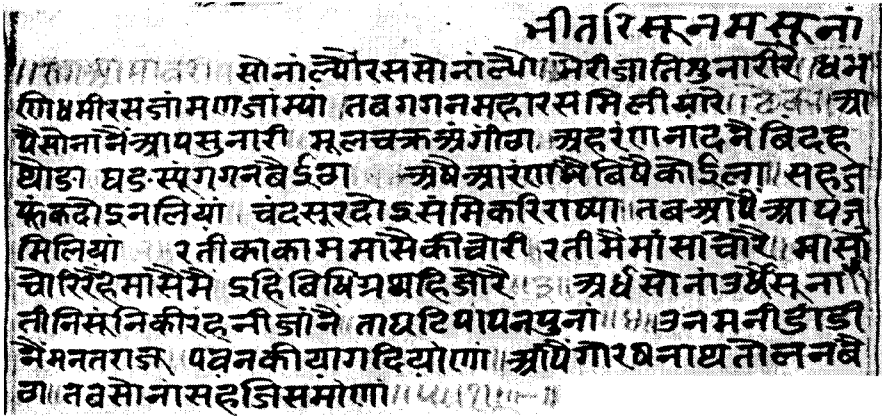 भीतरि सून मसूनां
सोनां ल्यौ रस सोनां ल्यौ ॥ मेरी जाति सुनारी रे ॥ धंम
णि धमी रस जांमण जांम्यां तब गगन महारस मिलीया रे ॥ टेक ॥ आ
पै सोनां नैं आप सुनारी मूल चक्र अंगीठा अहरंण नाद नैं बिंद ह
थोडा घडस्यूं गगन बैईठा अषै आरंण मै बिषै कोईला ॥ सहज
फूंक दोऽनलियां चंद सूर दोऽ संमि करि राष्या तब आपै आप ज
मिलियां रती का काम मासै की चोरी रती मै मांसा चोरै ॥ मासा
चोरि रहै मासै मै ऽहि बिधि ग्रथहि जोरै ॥३॥ अर्ध सोनां उर्धै सूनां
तीनि सूंनि की रंहनी जांनै ता घटि पाप न पुनां ॥४॥ उनमनी डांडी
मैं मन तराजू पवन कीया गदियांणां ॥ आपै गोरषनाथ तोलन बै
ठा ॥ तब सोनां सहजि समांणां ॥५॥१॥